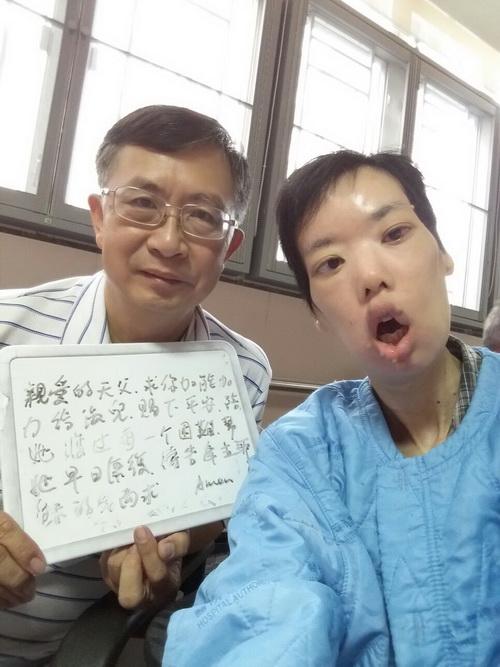 親愛的天父.求你加能加
力給淑兒賜下平安,陪
她渡过每一个困難,幫
她早日康復 禱告奉主耶
穌基督的名而求
Amen
HOSPITAL AUTHO